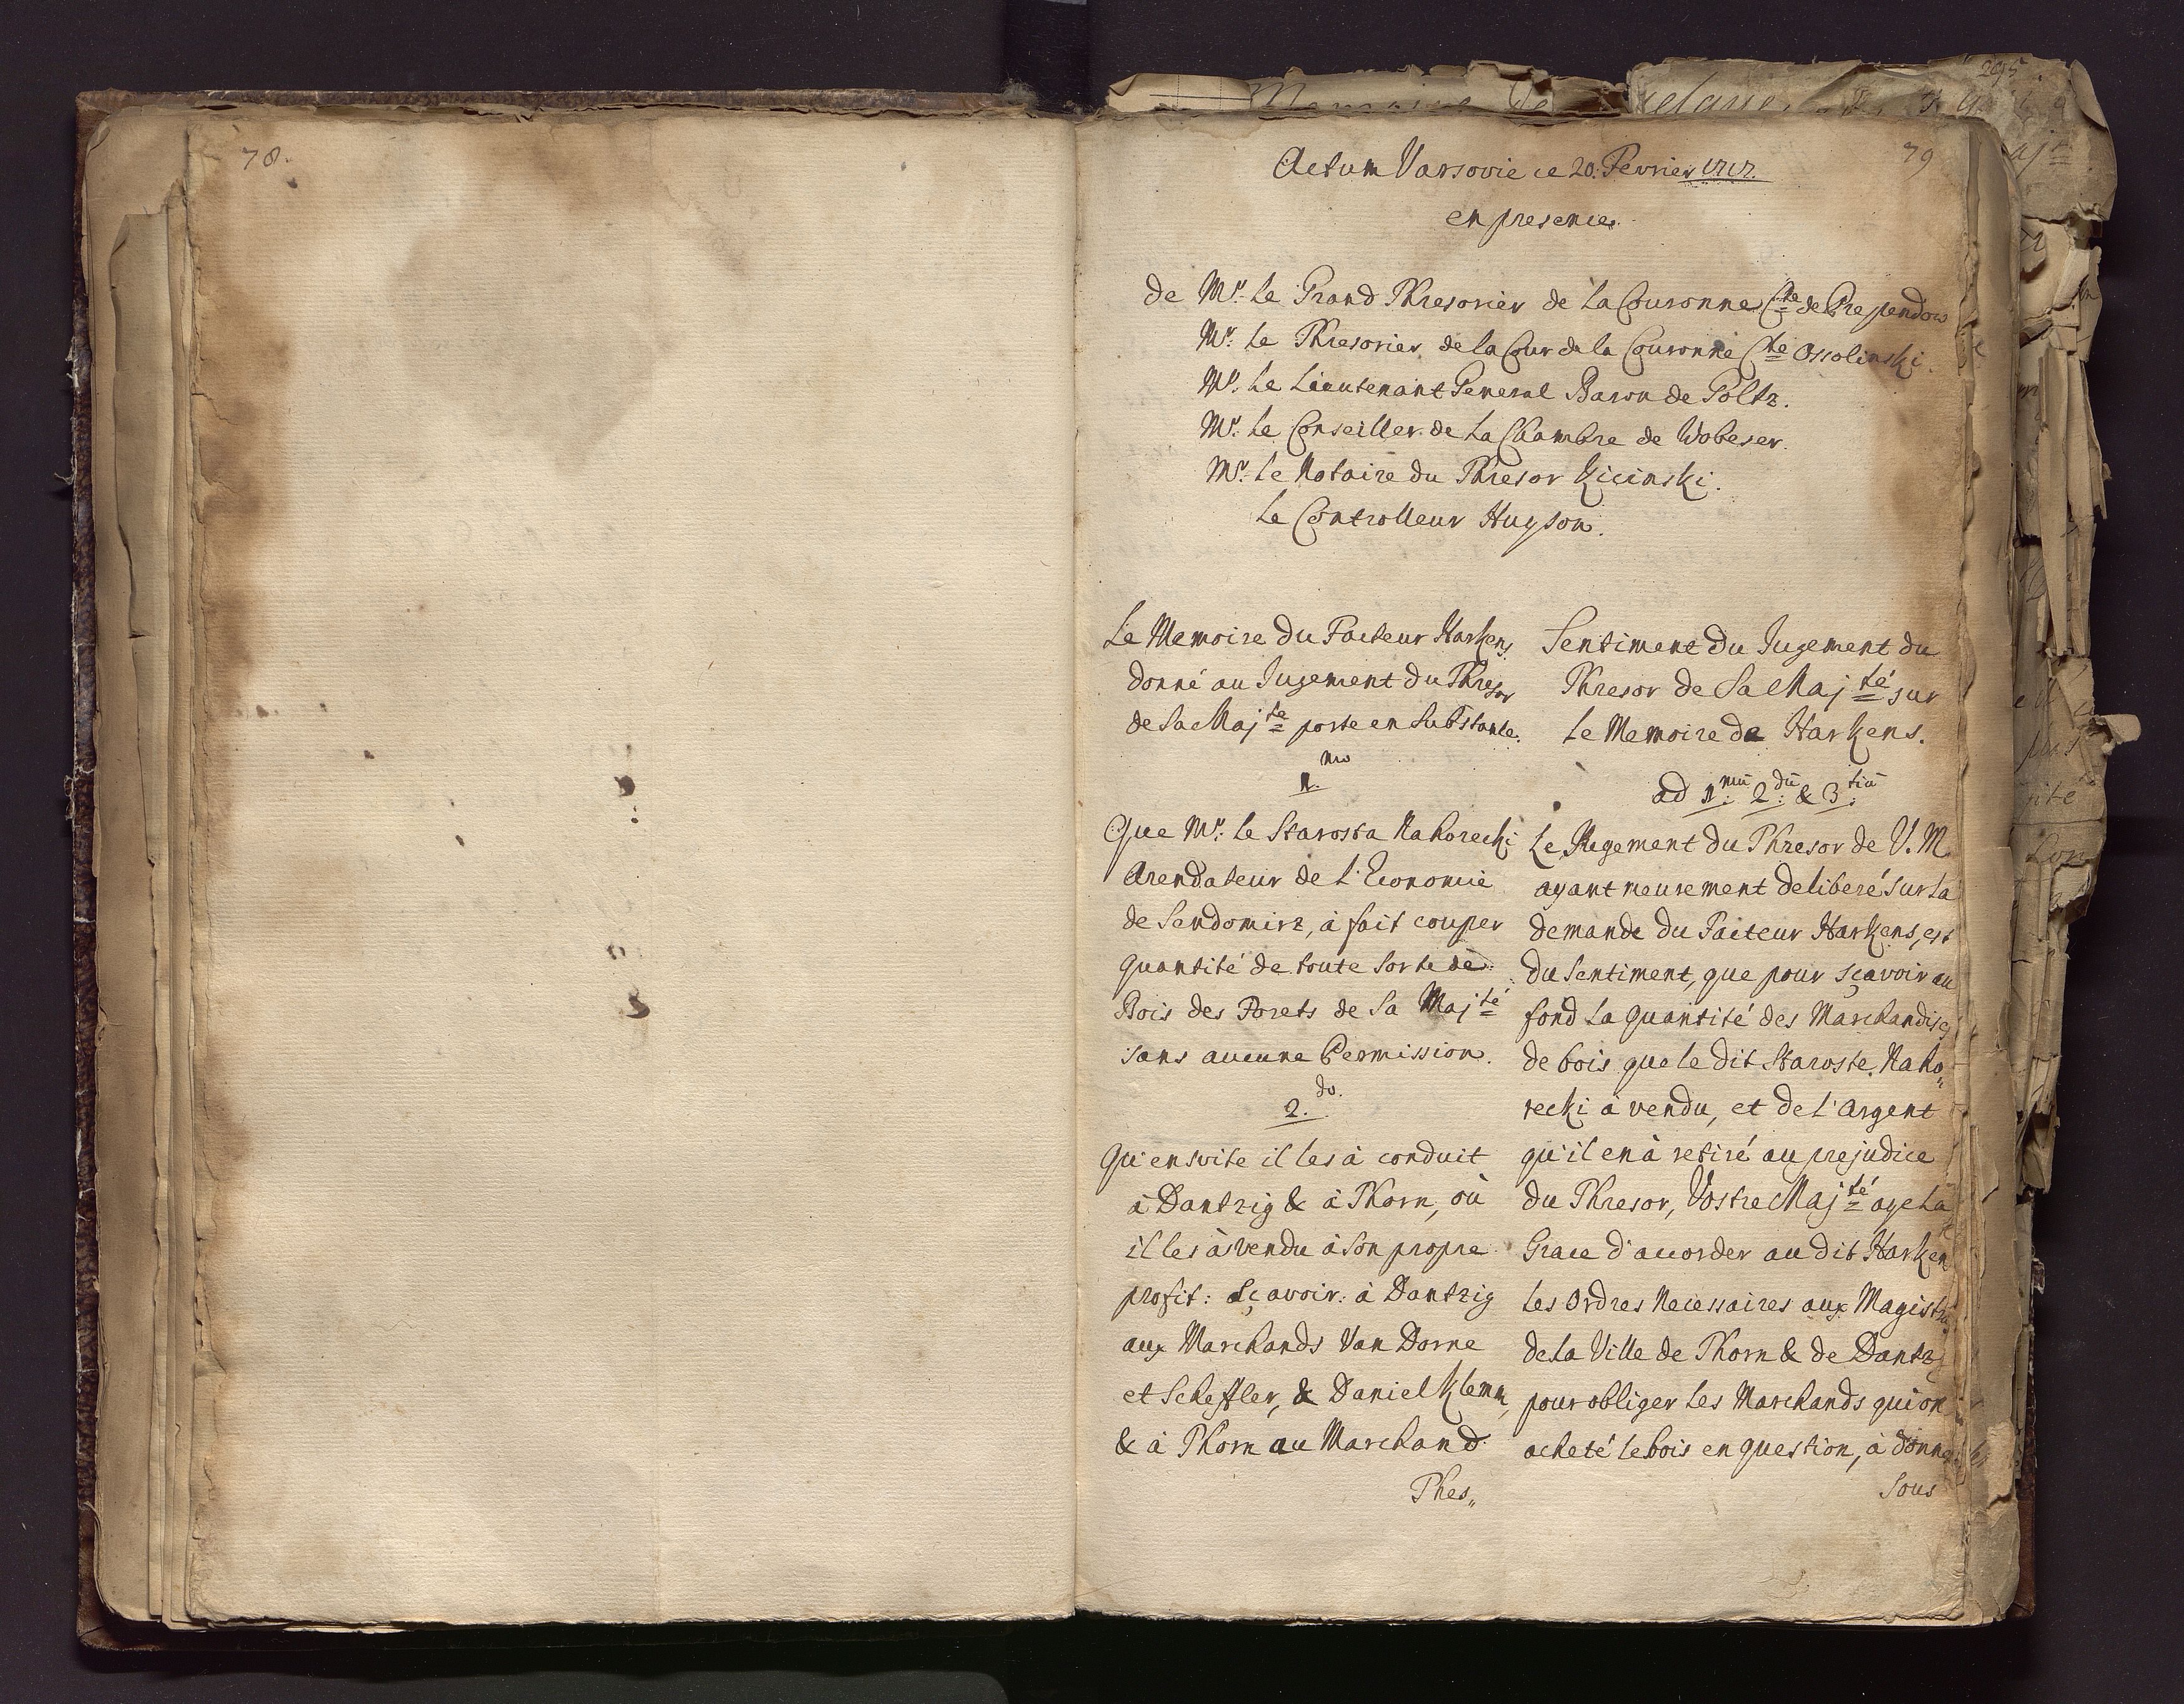 78.
79
Actum Varsovie ce 20. Fevrier 1717.
en presence
de Mr. Le Grand Thresorier de La Couronne Cte de Prependow
Mr. Le Thresorier de la Cour de la Couronne Cte Ossolinski.
Mr. Le Lieutenant General Baron de Goltz.
Mr. Le Conseiller de La Chambre de Wobeser.
Mr. Le Notaire du Thresor Kicinski.
Le Controlleur Huyson.
Le Memoire du Facteur Harkens
donné au Jugement du Thresor
de Sa Majté porte en Substance.
1.mo
Que Mr. Le Starosta Nakorecki
Arendateur de L'Economie
de Sendomirz, à fait couper
quantité de toute Sorte de
Bois des Forets de Sa Majté
sans aucune Permission.
2.do.
Qu'ensuite il les à conduit
à Dantzig & à Thorn, où
il les à vendu à Son propre
profit: Sçavoir: à Dantzig
aux Marchands Van Dorne
et Scheffler, & Daniel Klemm,
& à Thorn au Marchand
Thes„
Sentiment du Jugement du
Thresor de Sa Majté sur
Le Memoire de Harkens.
ad 1.mū 2.dū & 3.tiū
Le Jugement du Thresor de V. M
ayant meurement deliberé Sur La
demande du Facteur Harkens, est
du Sentiment, que pour sçavoir au
fond La quantité des Marchandises
de bois que le dit Staroste Nako„
recki à vendu, et de L'Argent
qu'il en à retiré au prejudice
du Thresor, Vostre Majté aye La
Grace d'accorder au dit Harken
Les Ordres Necessaires aux
de La Ville de Thorn & de Dantzg
pour obliger Les Marchands qui on
acheté le bois en question, à donner
Sous
295